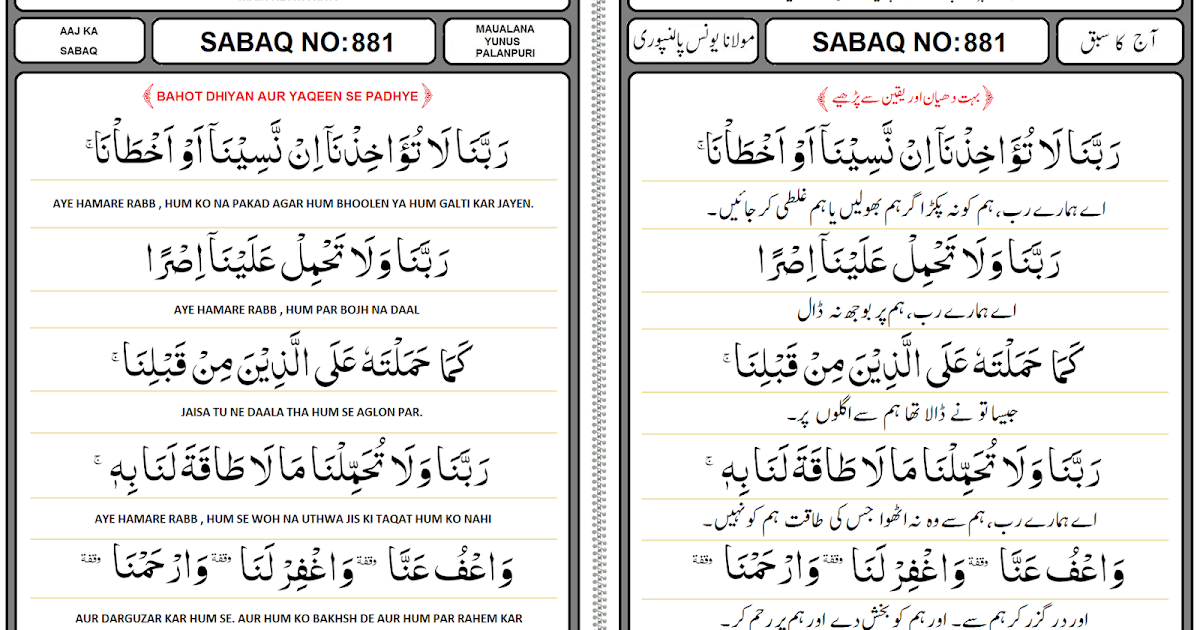 AAJ KA
SABAQ
SABAQ NO:881
MAUALANA
YUNUS
PALANPURI
BAHOT DHIYAN AUR YAQEEN SE PADHYE
رَبَّنَا لَا تُؤَاخِذْنَآ اِنْ نَّسِيْنَآ اَوْ اَخْطَاْنَا ۚ
AYE HAMARE RABB , HUM KO NA PAKAD AGAR HUM BHOOLEN YA HUM GALTI KAR JAYEN.
رَبَّنَا وَلَا تَحْمِلْ عَلَيْنَآ اِصْرًا
AYE HAMARE RABB , HUM PAR BOJH NA DAAL
كَمَا حَمَلْتَهٗ عَلَى الَّذِيْنَ مِنْ قَبْلِنَا ۚ
JAISA TU NE DAALA THA HUM SE AGLON PAR.
رَبَّنَا وَلَا تُحَمِّلْنَا مَا لَا طَاقَةَ لَنَا بِهٖ ۚ
AYE HAMARE RABB , HUM SE WOH NA UTHWA JIS KI TAQAT HUM KO NAHI
وَاعْفُ عَنَّا وقفة وَاغْفِرْ لَنَا وقفة وَارْحَمْنَا وقفة
AUR DARGUZAR KAR HUM SE. AUR HUM KO BAKHSH DE AUR HUM PAR RAHEM KAR
مولانا یونس پالنپوری
SABAQ NO:881
آج کا سبق
بہت دھیان اور یقین سے پڑھیے
رَبَّنَا لَا تُؤَاخِذْنَآ اِنْ نَّسِيْنَآ اَوْ اَخْطَاْنَا ۚ
اے ہمارے رب، ہم کو نہ پکڑ اگر ہم بھولیں یا ہم غلطی کر جائیں۔
رَبَّنَا وَلَا تَحْمِلْ عَلَيْنَآ اِصْرًا
اے ہمارے رب، ہم پر بوجھ نہ ڈال
كَمَا حَمَلْتَهٗ عَلَى الَّذِيْنَ مِنْ قَبْلِنَا ۚ
جیسا تو نے ڈالا تھا ہم سے اگلوں پر۔
رَبَّنَا وَلَا تُحَمِّلْنَا مَا لَا طَاقَةَ لَنَا بِهٖ ۚ
اے ہمارے رب، ہم سے وہ نہ اٹھوا جس کی طاقت ہم کو نہیں۔
وَاعْفُ عَنَّا وقفة وَاغْفِرْ لَنَا وقفة وَارْحَمْنَا وقفة
اور در گزر کر ہم سے۔ اور ہم کو بخش دے اور ہم پر رحم کر۔